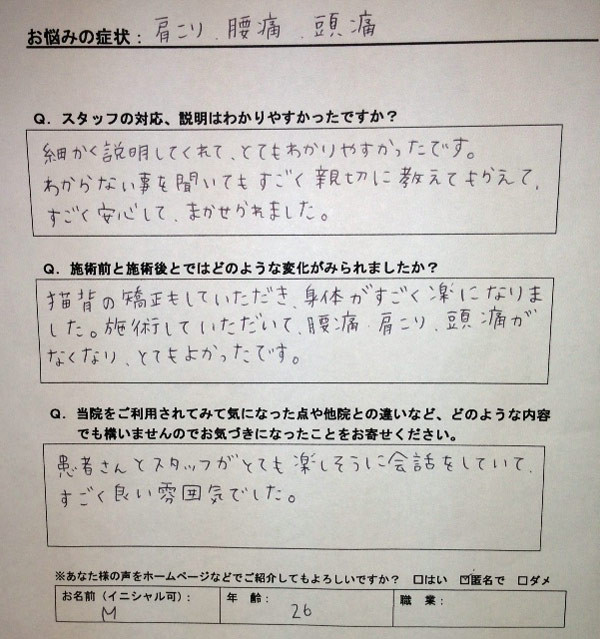 お悩みの症状：肩こり、腰痛、頭痛
Q．スタッフの対応、説明はわかりやすかったですか？
細かく説明してくれて、とてもわかりやすかったです。
わからない事を聞いてもすごく親切に教えてもらえて、
すごく安心して、まかせられました。
Q．施術前と施術後とではどのような変化がみられましたか？
猫背の矯正もしていただき、身体がすごく楽になりま
した。施術していただいて、腰痛、肩こり、頭痛が
なくなり、とてもよかったです。
Q．当院をご利用されてみて気になった点や他院との違いなど、どのような内容
でも構いませんのでお気づきになったことをお寄せください。
患者さんとスタッフがとても楽しそうに会話をしていて、
すごく良い雰囲気でした。
※あなた様の声をホームページなどでご紹介してもよろしいですか？ □はい ☑匿名で □ダメ
お名前（イニシャル可）： 年　齢： 職　業：
M 26